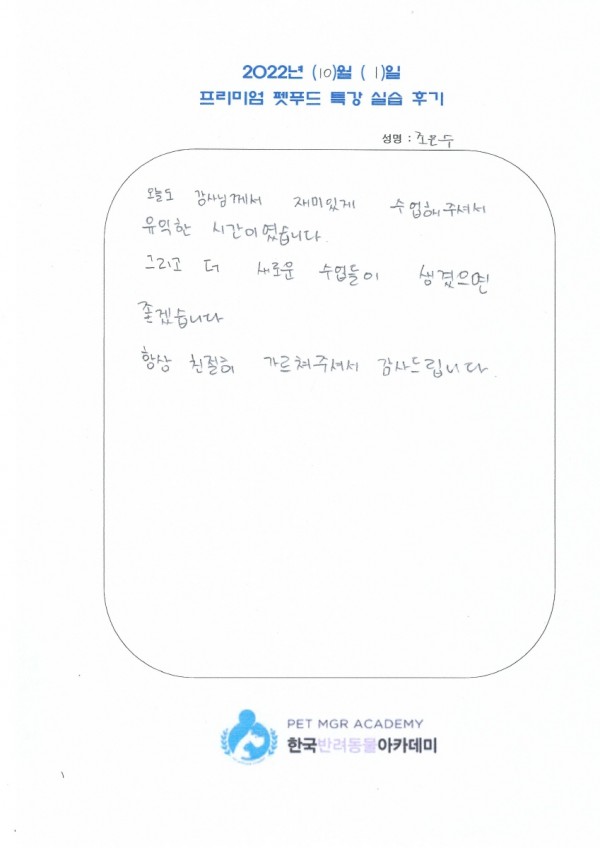 2022년 (10)월 (1)일
프리미엄 펫푸드 특강 실습 후기
성명 : 조은수
오늘도 강사님께서 재미있게 수업해주셔서
유익한 시간이였습니다.
그리고 더 새로운 수업들이 생겼으면
좋겠습니다
항상 친절히 가르쳐주셔서 감사드립니다.
PET MGR ACADEMY
한국반려동물아카데미